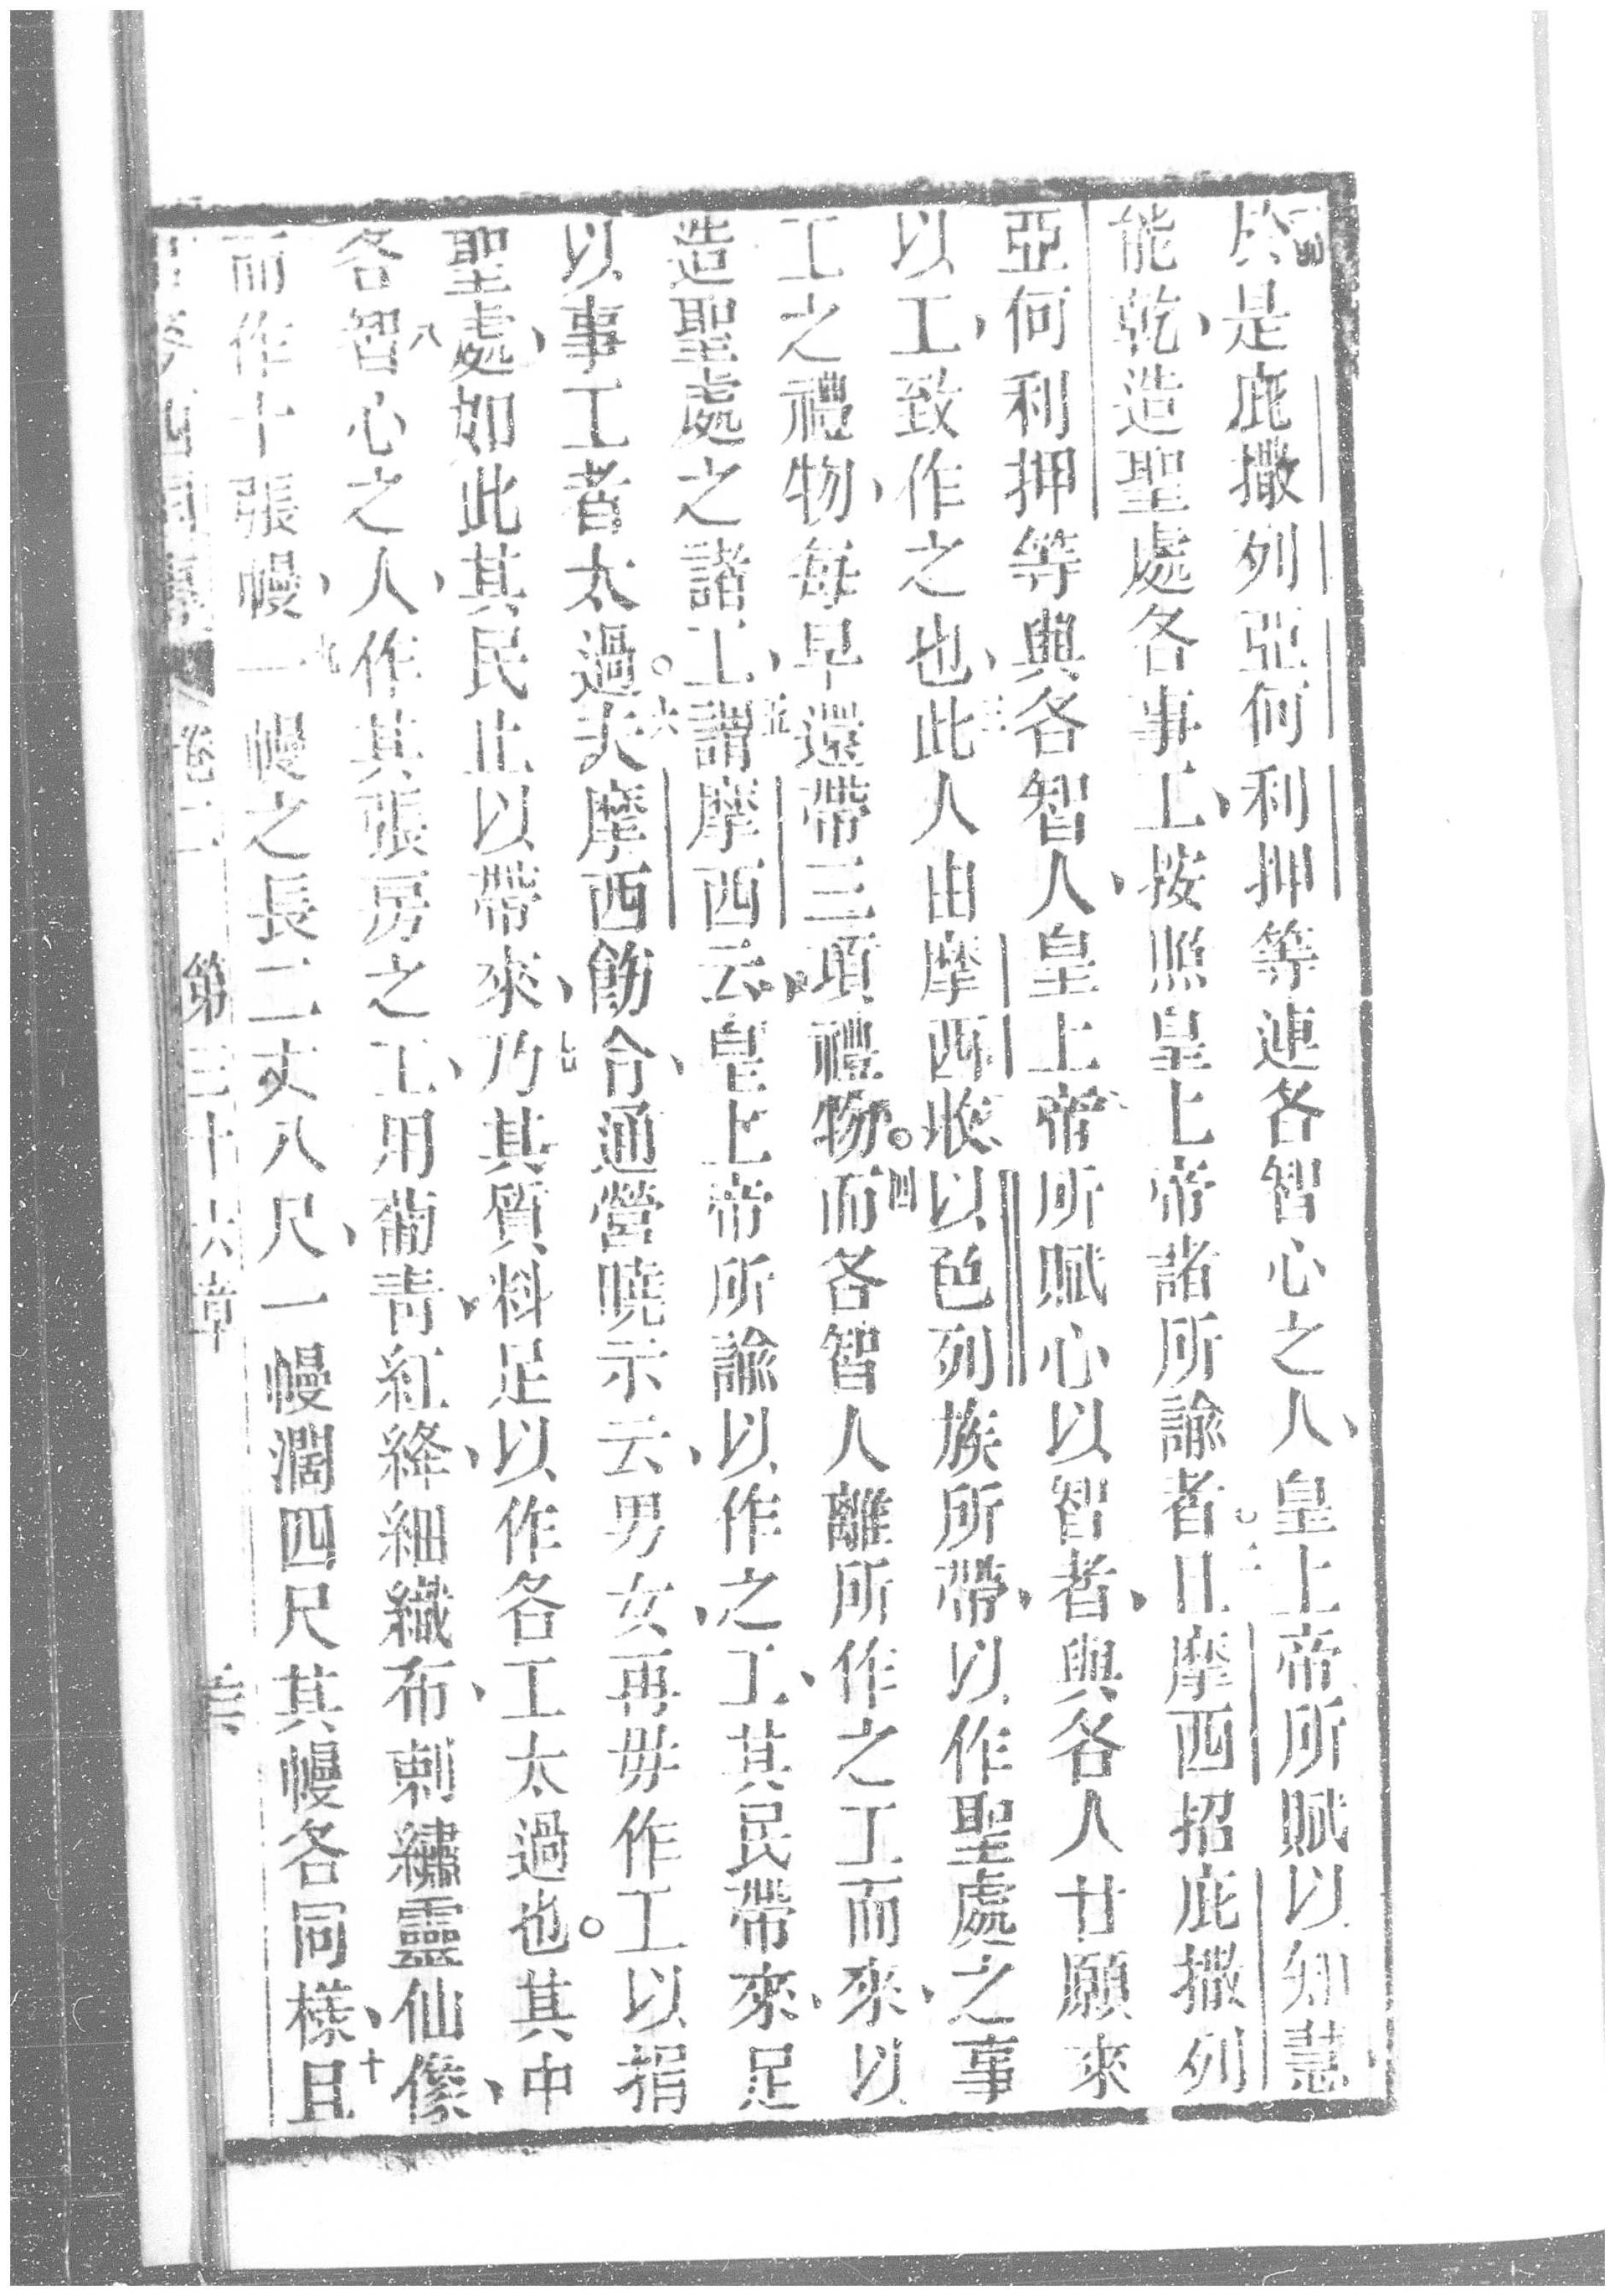 於是庇撒列亞何利押等連各智心之人、皇上帝所賦以知慧
能乾、造聖處各事工、按照皇上帝諸所諭者。二且摩西招庇撒列
亞何利押等與各智人、皇上帝所賦心以智者、與各人甘願來
以工、致作之也、三此人由摩西收以色列族所帶、以作聖處之事
工之禮物、每早還帶三項禮物。四而各智人離所作之工而來、以
造聖處之諸工、五謂摩西云、皇上帝所諭以作之工、其民帶來足
以事工者太過。六夫摩西飭令、通營曉示云、男女再毋作工以捐
聖處、如此其民止以帶來、七乃其質料足以作各工太過也。其中
八各智心之人、作其張房之工、用葡青、紅絳、細織布、刺繡靈仙像、
而作十張幔、九一幔之長二丈八尺、一幔濶四尺其幔各同樣、十且
卷二 第三十六章